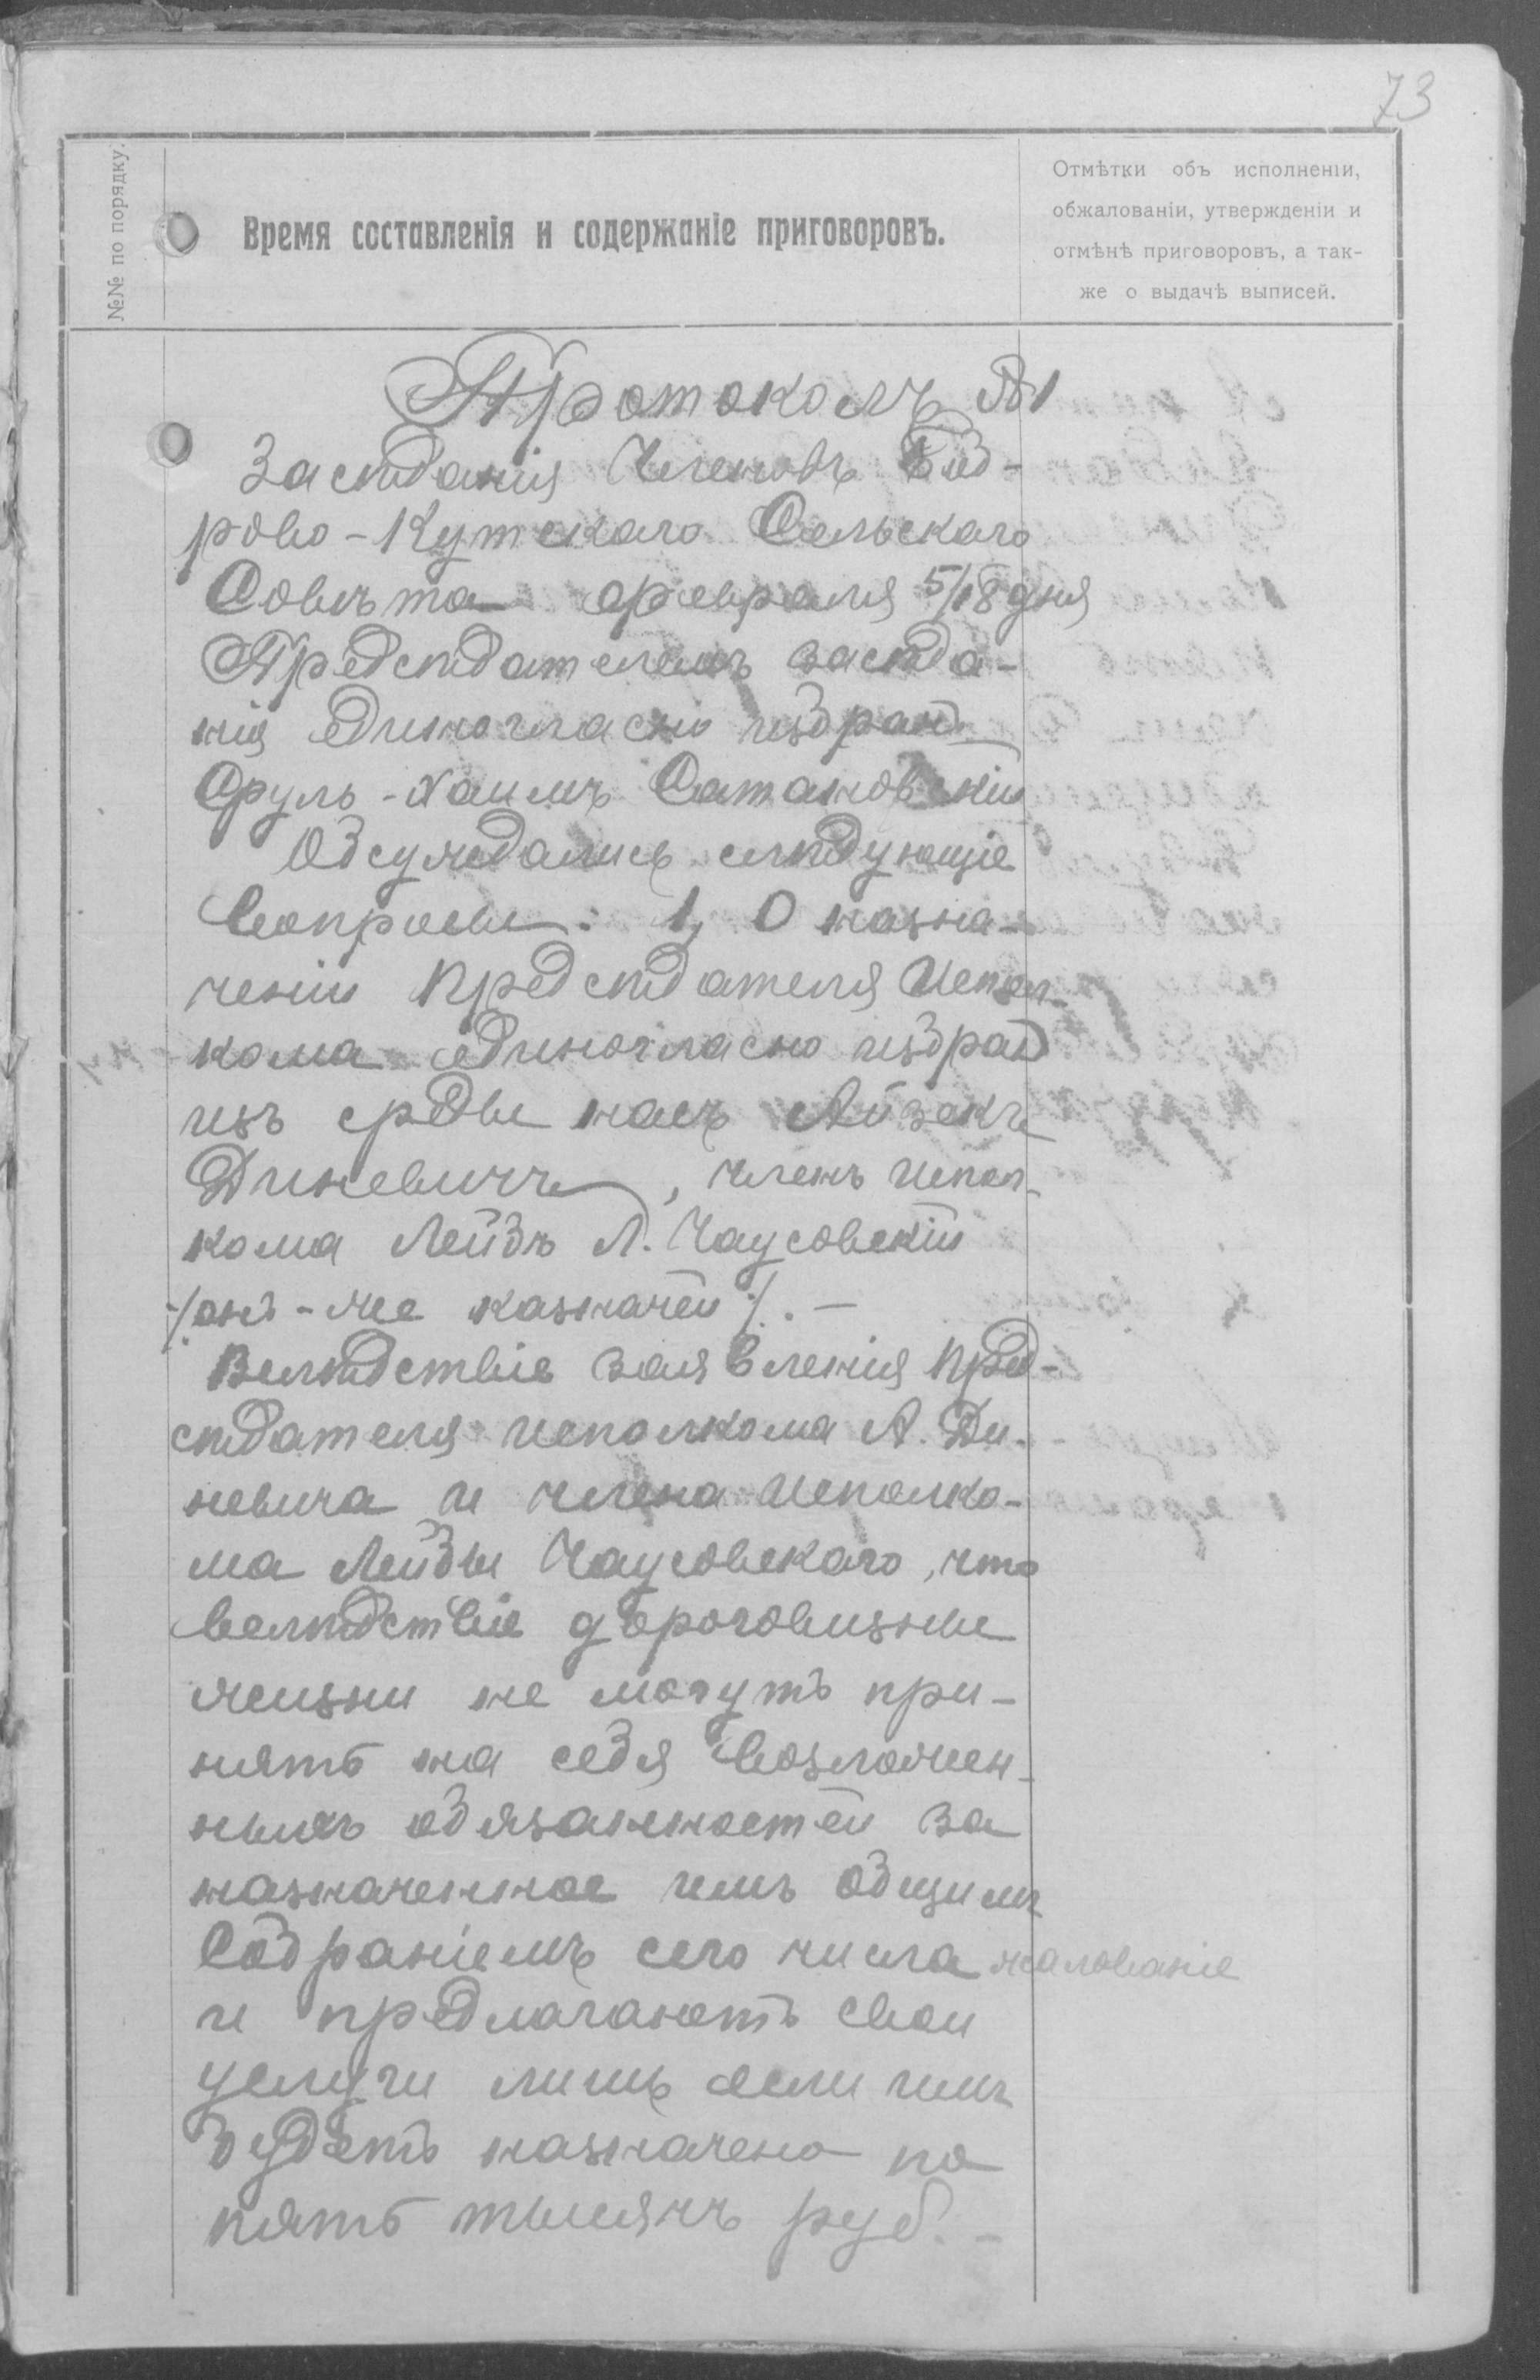 73
№№ по порядку.
Время составленія и содержаніе приговоровъ.
Отмѣтки объ исполненіи,
обжалованіи, утвержденіи и
отмѣнѣ приговоровъ, а так-
же о выдачѣ выписей.
Протоколъ №1
Засѣданія Членовъ Бѣд-
рово-Кутскаго Сельскаго
Совѣта февраля 5/18 дня
Предсѣдателемъ засѣда-
нія единогласно избранъ
Сруль-Хаимъ Сатановскій
Обсуждались слѣдующіе
Вопросы: 1, О назна-
ченіи Предсѣдателя Испол-
кома единогласно избранъ
изъ среды насъ Айзекъ
Диневичъ, членъ Испол-
кома Лейбъ Л. Чаусовскій
/онъ-же казначей/. —
Вслѣдствіе заявленія Пред-
сѣдателя исполкома А. Ди-
невича и члена Исполко-
ма Лейбы Чаусовскаго, что
вслѣдствіе дороговизны
жизни не могутъ при-
нять на себя возложен-
ныхъ обязанностей за
назначенное имъ общимъ
Собраніемъ сего числа жалованіе
и предлагаютъ свои
услуги лишь если имъ
будетъ назначено по
пять тысячъ руб. —